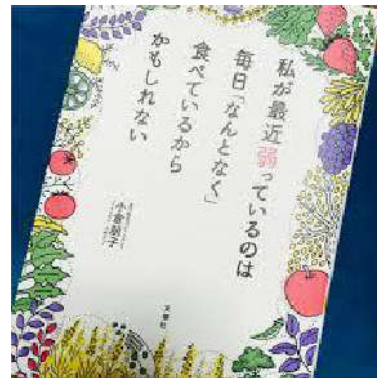 私が最近弱っているのは
毎日「なんとなく」
食べているから
かもしれない
小倉朋子
文響社